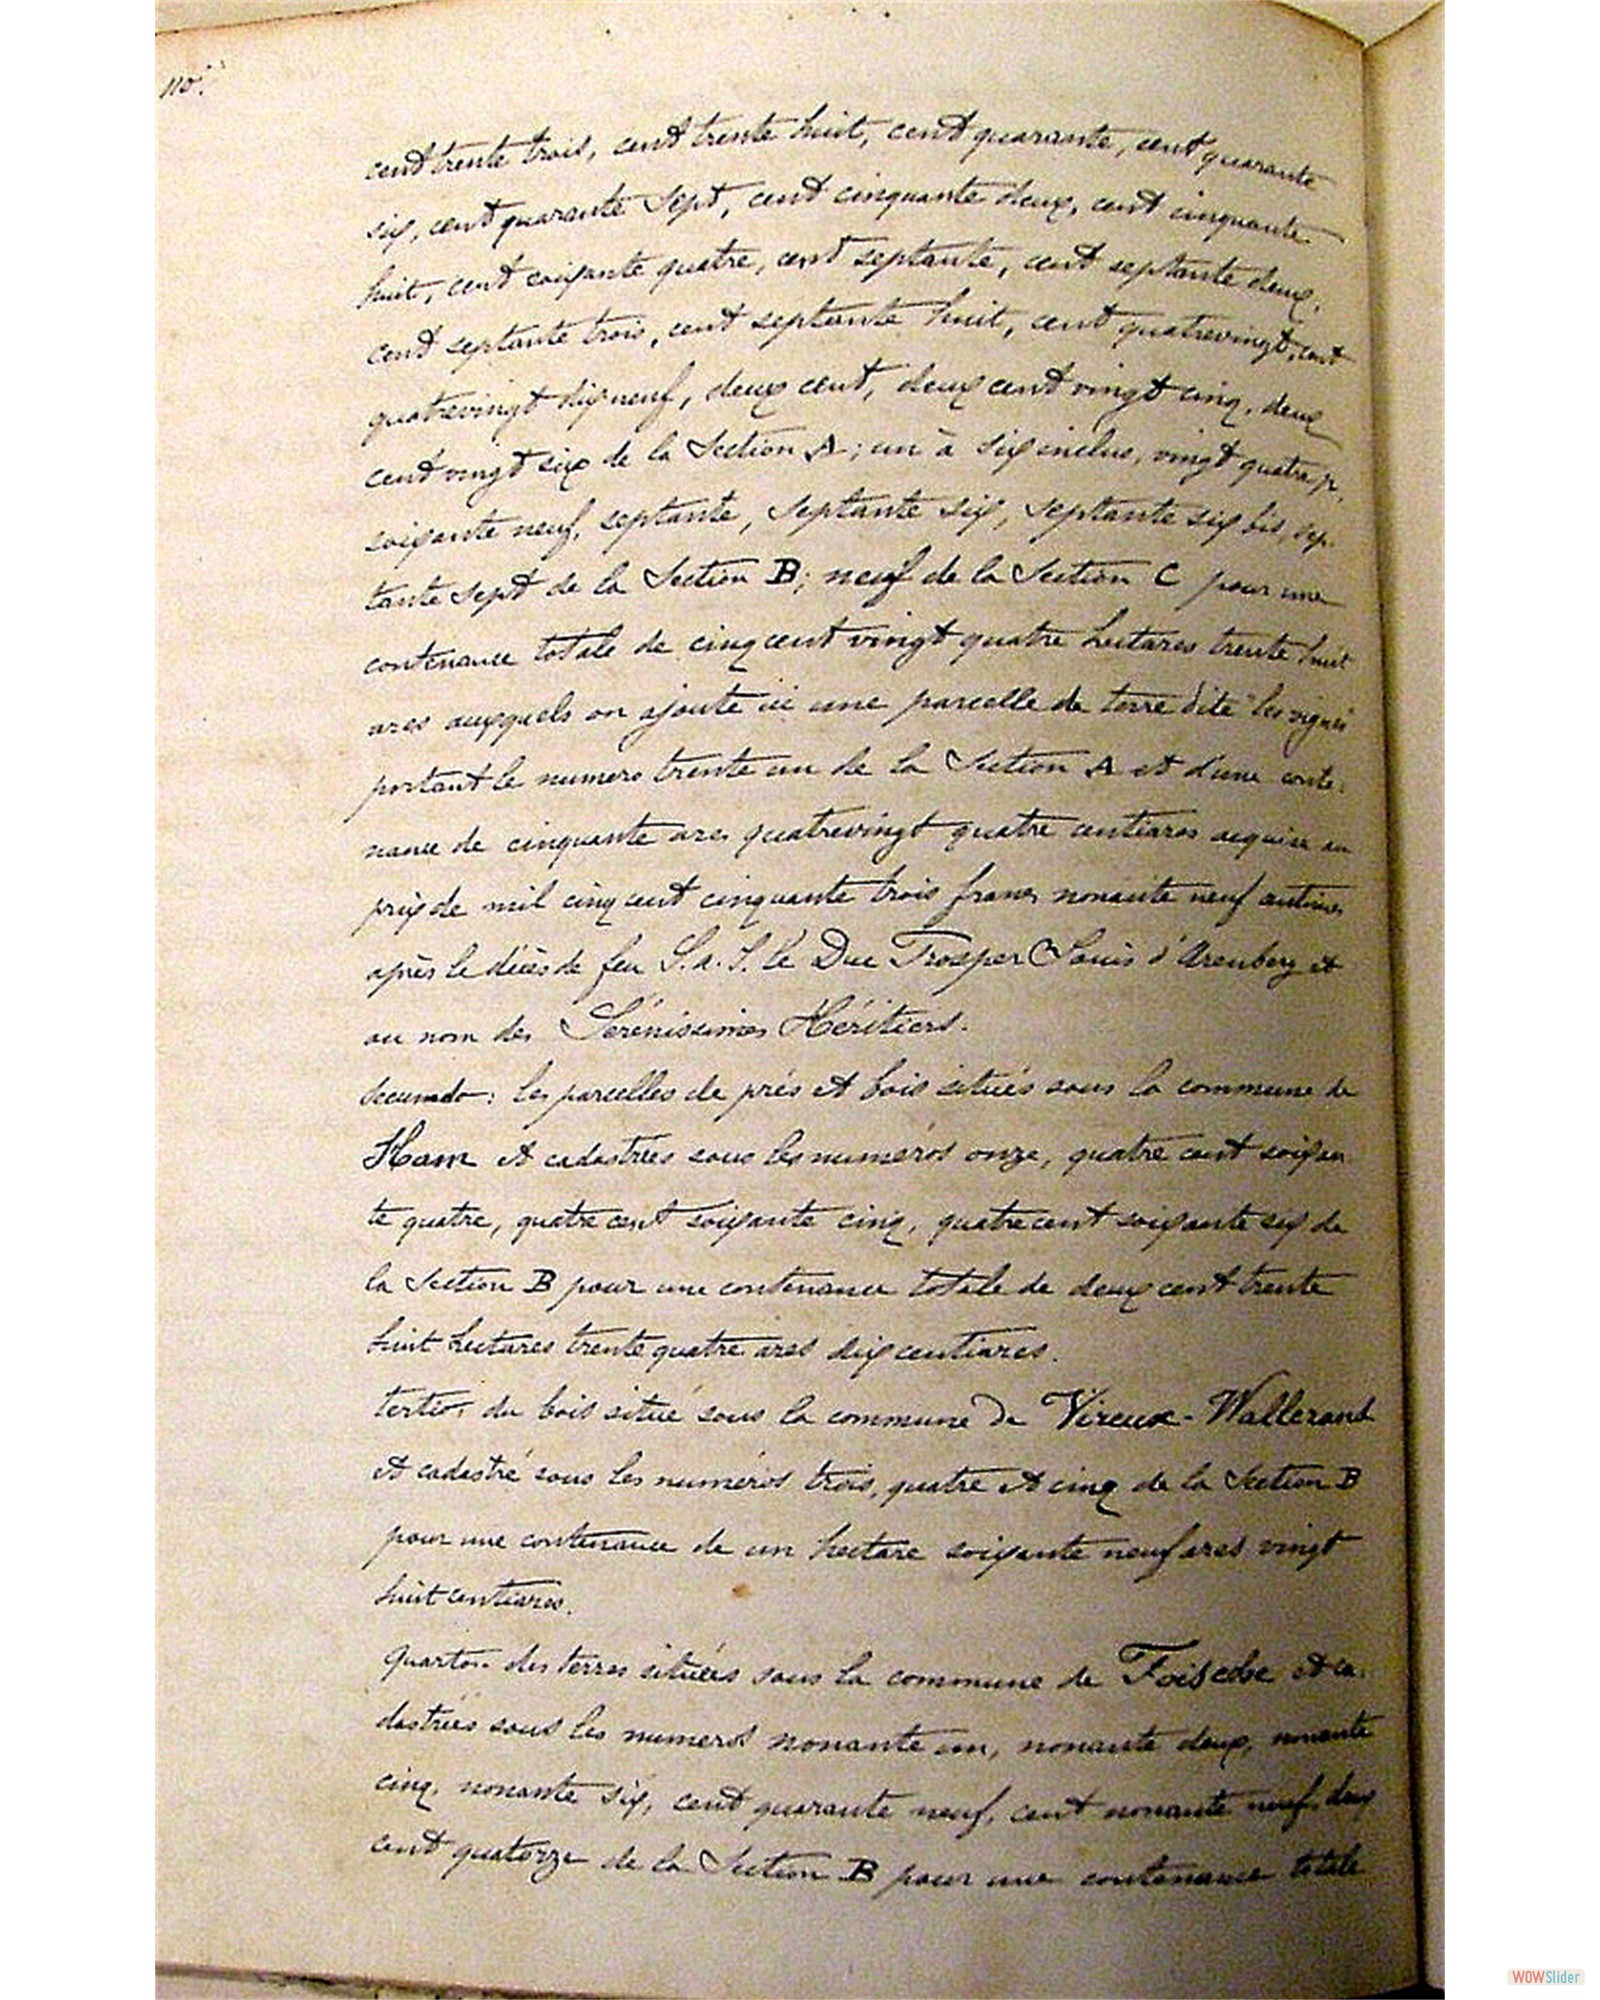 cent trente trois, cent trente huit, cent quarante, cent quarante
six, cent quarante sept, cent cinquante deux, cent cinquante
huit, cent soixante quatre, cent septante, cent septante deux,
cent septante trois, cent septante huit, cent quatrevingt, cent
quatrevingt dix neuf, deux cent, deux cent vingt cinq, deux
cent vingt six de la Section A; un à six inclus, vingt quatre p.
soixante neuf, septante, septante six, septante six bis, sep-
tante sept de la Section B; neuf de la Section C pour une
contenance totale de cinq cent vingt quatre hectares trente huit
ares auxquels on ajoute ici une parcelle de terre dite "les vignes
portant le numero trente un de la Section A et d'une conte-
nance de cinquante ares quatrevingt quatre centiares acquise au
prix de mil cinq cent cinquante trois francs nonante neuf centimes
après le décès de feu S. A. S. le Duc Prosper Louis d'Arenberg et
au nom des Sérénissimes Héritiers.
secundo: les parcelles de prés et bois situés sous la commune de
Ham et cadastrées sous les numéros onze, quatre cent soixan
te quatre, quatre cent soixante cinq, quatre cent soixante six de
la Section B pour une contenance totale de deux cent trente
huit hectares trente quatre ares dix centiares.
tertio. du bois situé sous la commune de Vireux-Wallerand
et cadastré sous les numéros trois, quatre et cinq de la Section B
pour une contenance de un hectare soixante neuf ares vingt
huit centiares.
quarto. des terres situées sous la commune de Foische et ca-
dastrées sous les numeros nonante un, nonante deux, nonante
cinq, nonante six, cent quarante neuf, cent nonante neuf, deux
cent quatorze de la Section B pour une contenance totale
WOWSlider